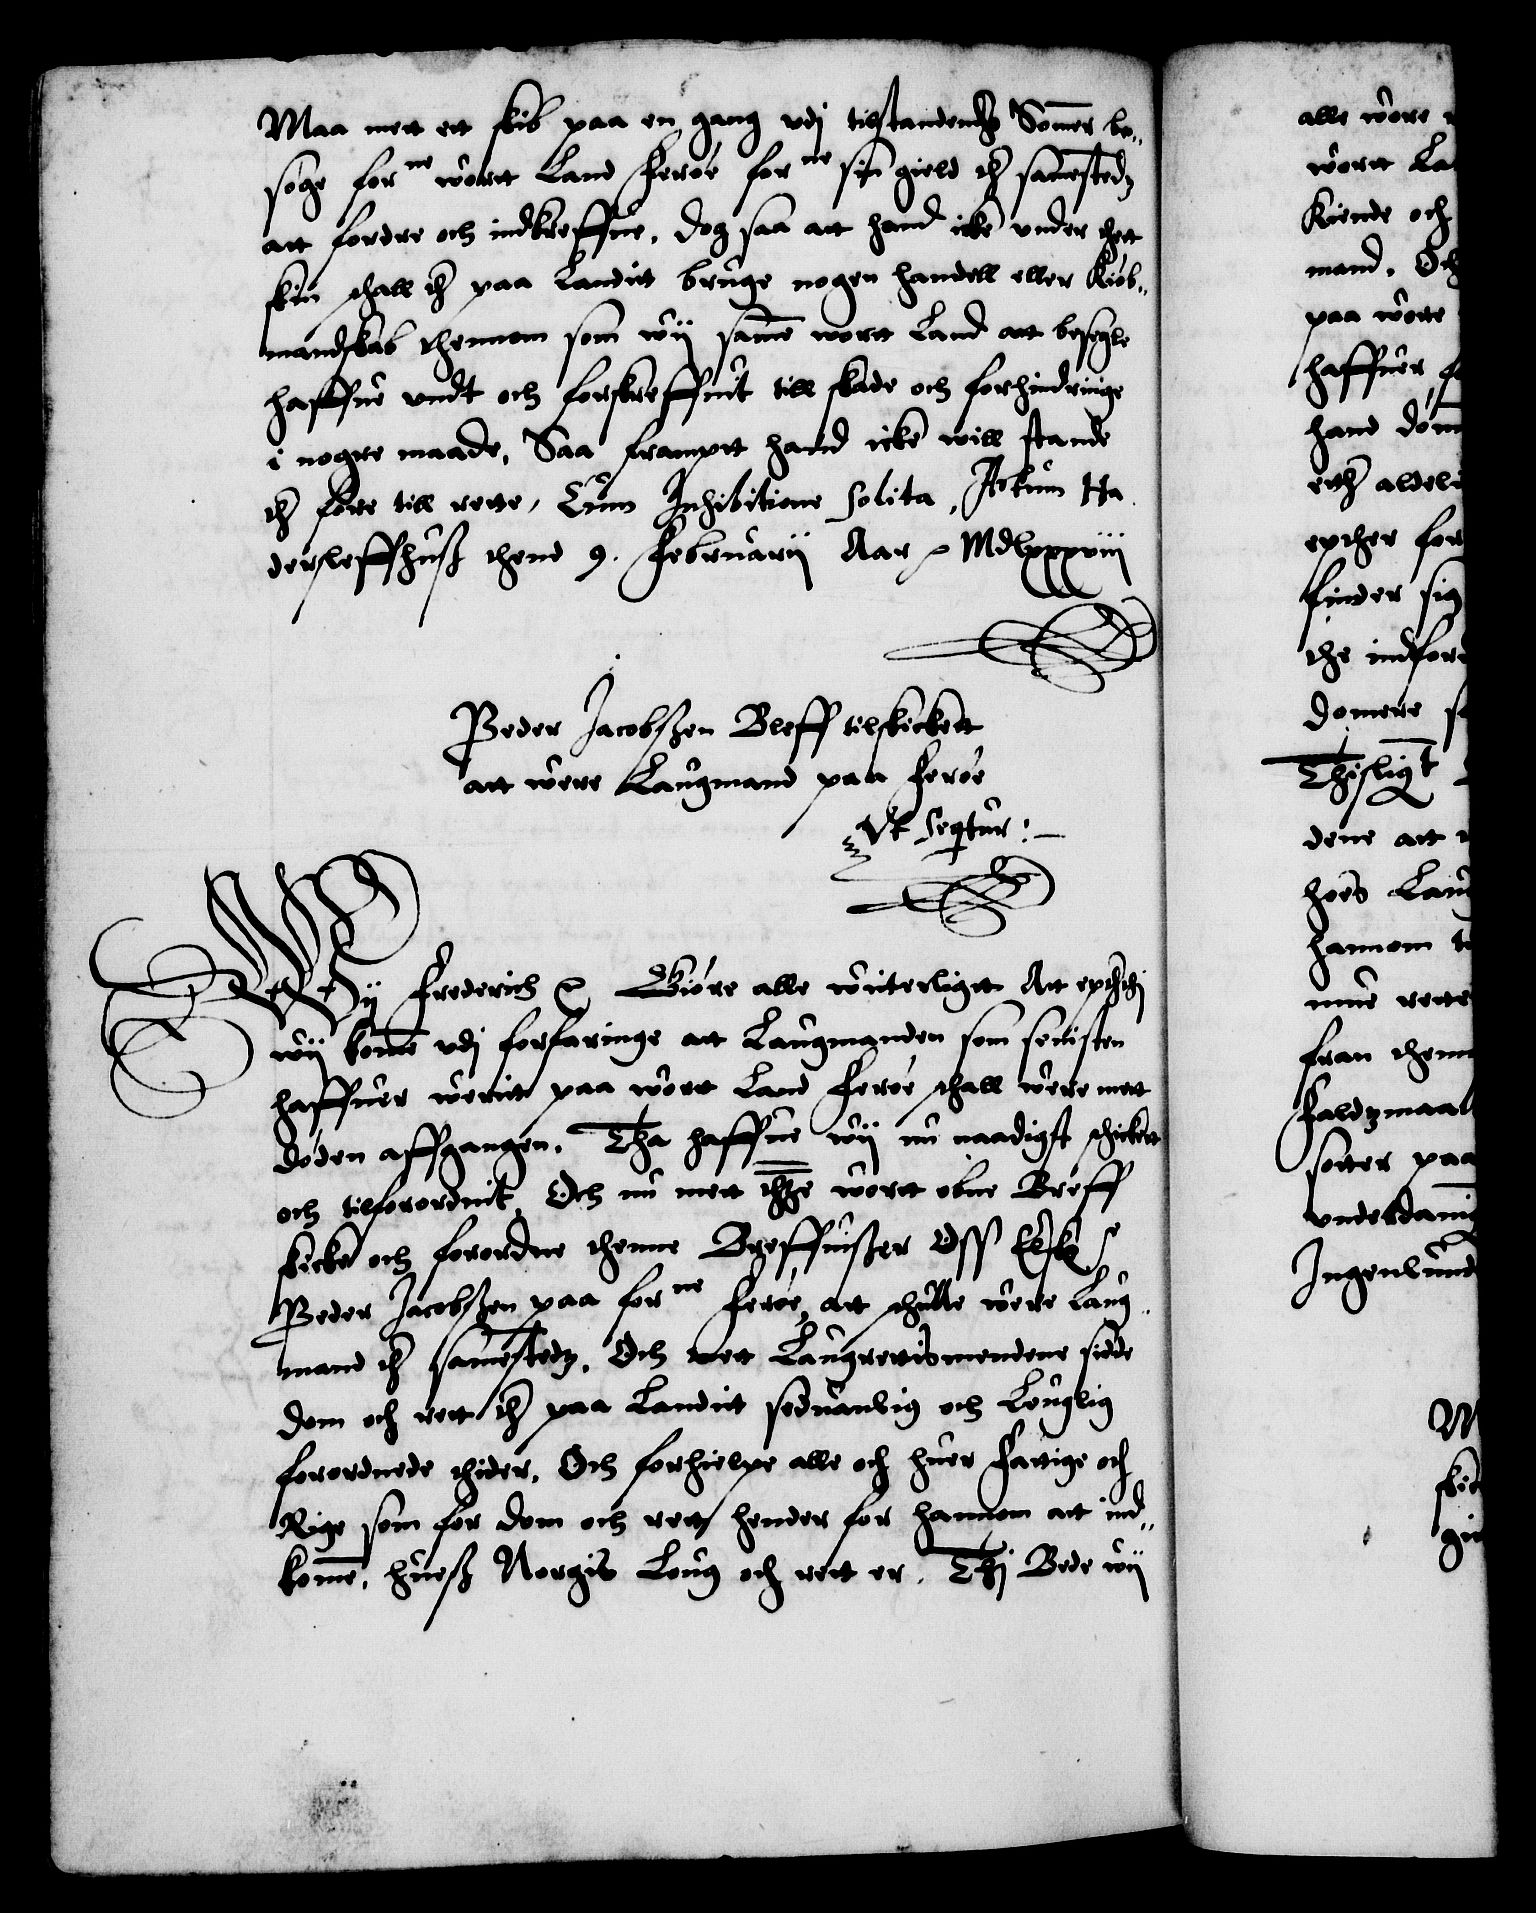 Maa mett ett skib paa en gang vdj tilstandendes Somer be„
søge forne wortt Land Ferøe forne sin gield ther samestedz
att fordre och indkreffue, dog saa att hand icke vnder thett
skin schall ther paa Landit bruge nogen handell eller Kiøb„
mandskab thennom som wij same wortt Land att besegle
haffue vndt och forskreffuit till skade och forhindringe
i nogre maade, Saa frampt hand icke will stande
ther fore till rette, Cum Inhibitione Solita, Actum Ha
dersleffhuß thend 9. Februarij Aar &c Mdlxxxviii
Peder Jacobßen Bleff tilskickett
att were Laugmand paa Ferøe
Vt Seqtur:
Wij Frederich &c Giøre alle witterligtt Att epttherthj
wij kome vdj forfaringe att Laugmanden som senisten
haffuer werit paa wortt Land Ferøe schall were mett
døden affgangen. Tha haffue wij nu naadigst schickett
och tilforordnit, Och nu mett thze wortt obne Breff
skicke och forordne thenne Breffuißer Oss Elsk
Peder Jacobßen paa forne Ferøe, att schulle were Laug„
mand ther samestedz. Och mett Laugrettismendene sidde
dom och rett ther paa Landit seduanlig och Louglig
forordnede thider. Och forhielpe alle och huer Fattige och
Rige som for dom och rett hender for hannom att ind„
kome, hueß Norgis Loug och rett er. Thj Bede wij
alle wore
wortt La
Kiende och
mand. Och
paa wore
haffuer
hand døm
etther aldeli
epther for
finder sig
the indfor
domere
Thisligt
dene att
hoes Laug
hannom
nue rette
fran them
Faldzmaal
sotter paa
vnderdanig
Ingenlund